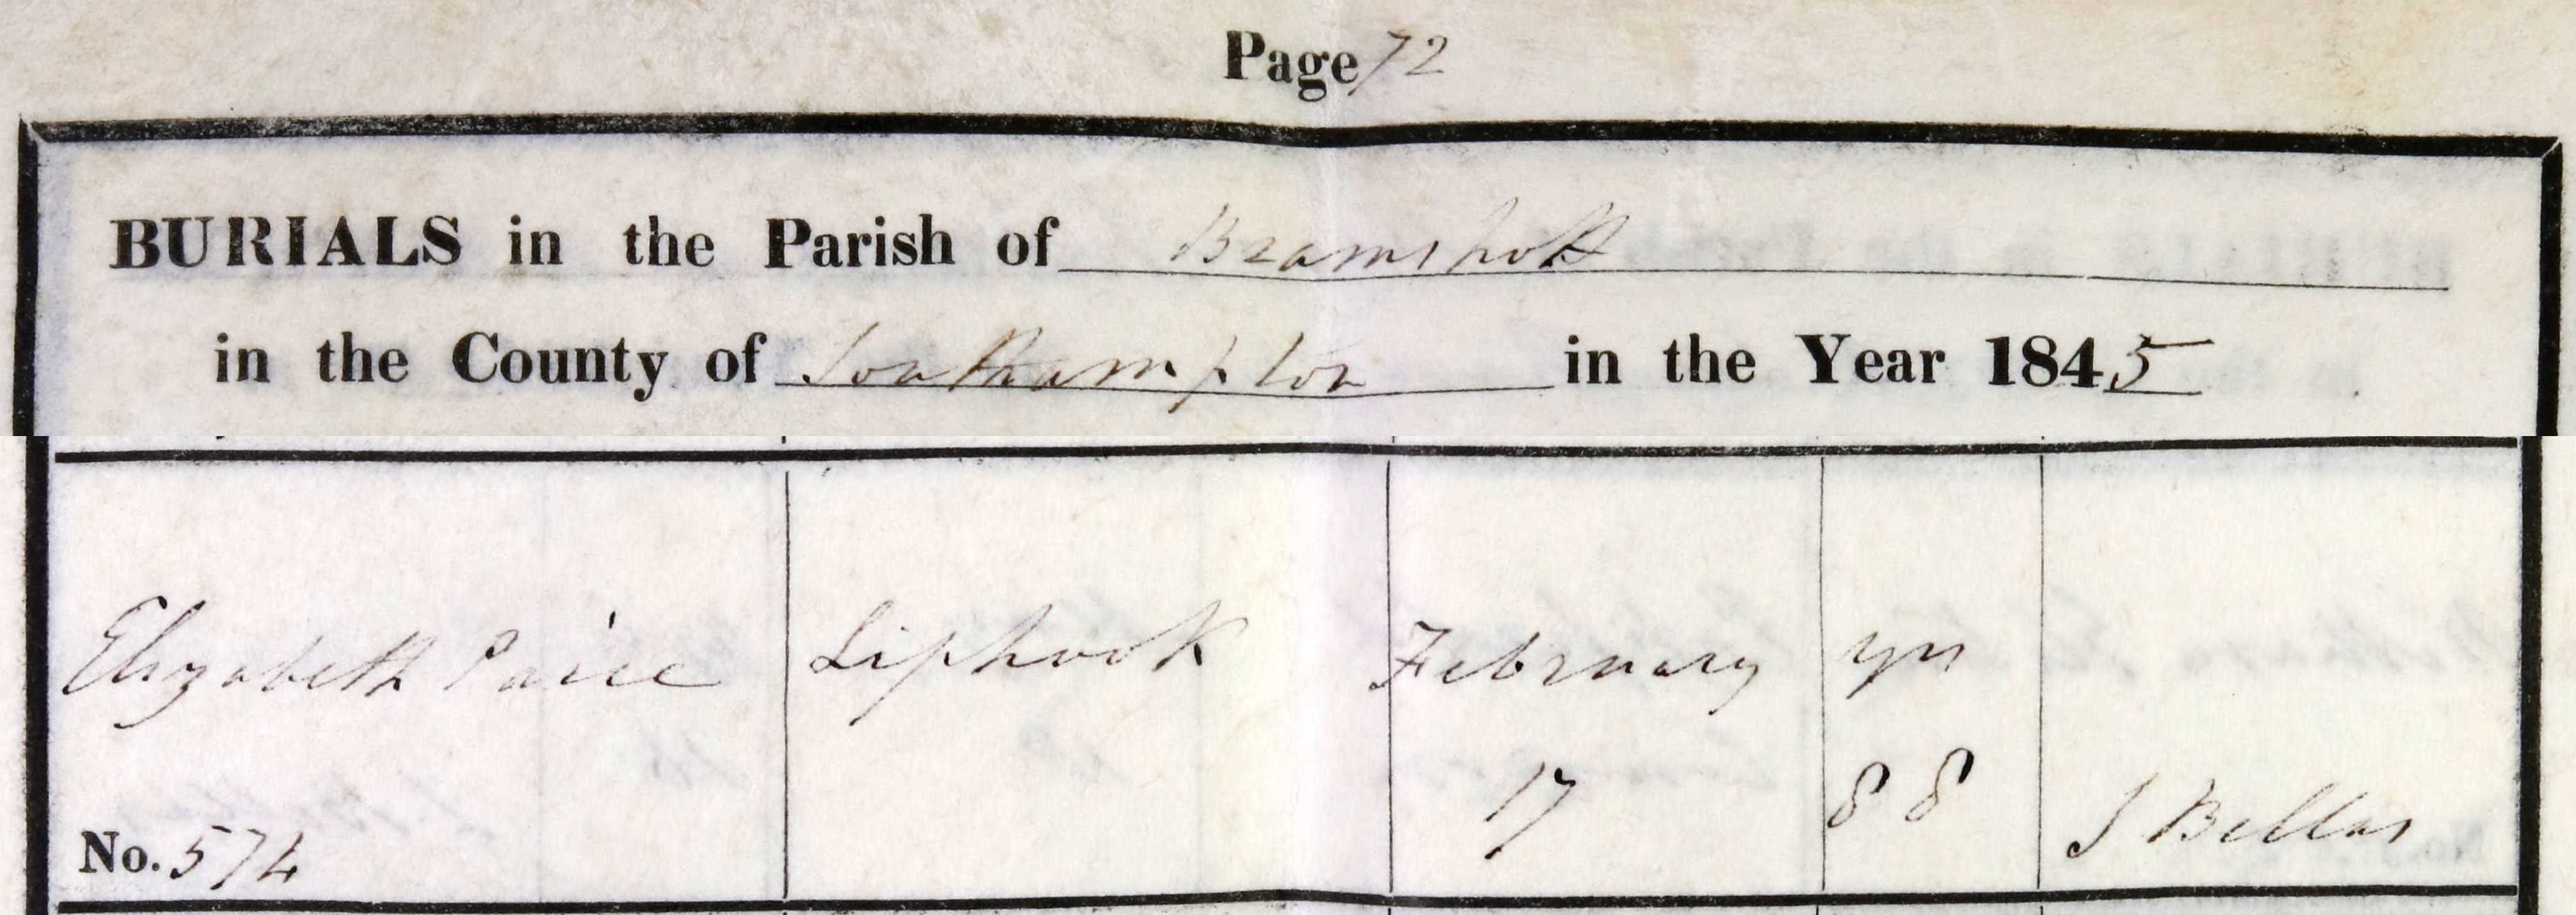 Page 72
BURIALS in the Parish of Bramshott
in the County of Southampton in the Year 1845
Elizabeth Paice Liphook February yrs
17 88 J Bellas
No. 574